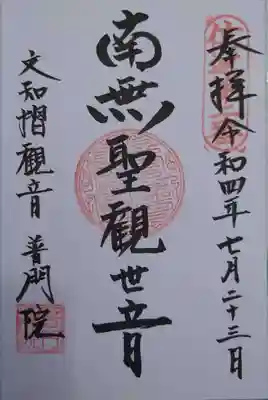 奉拝令和四年七月二十三日
南無聖観世音
文知摺観音 普門院